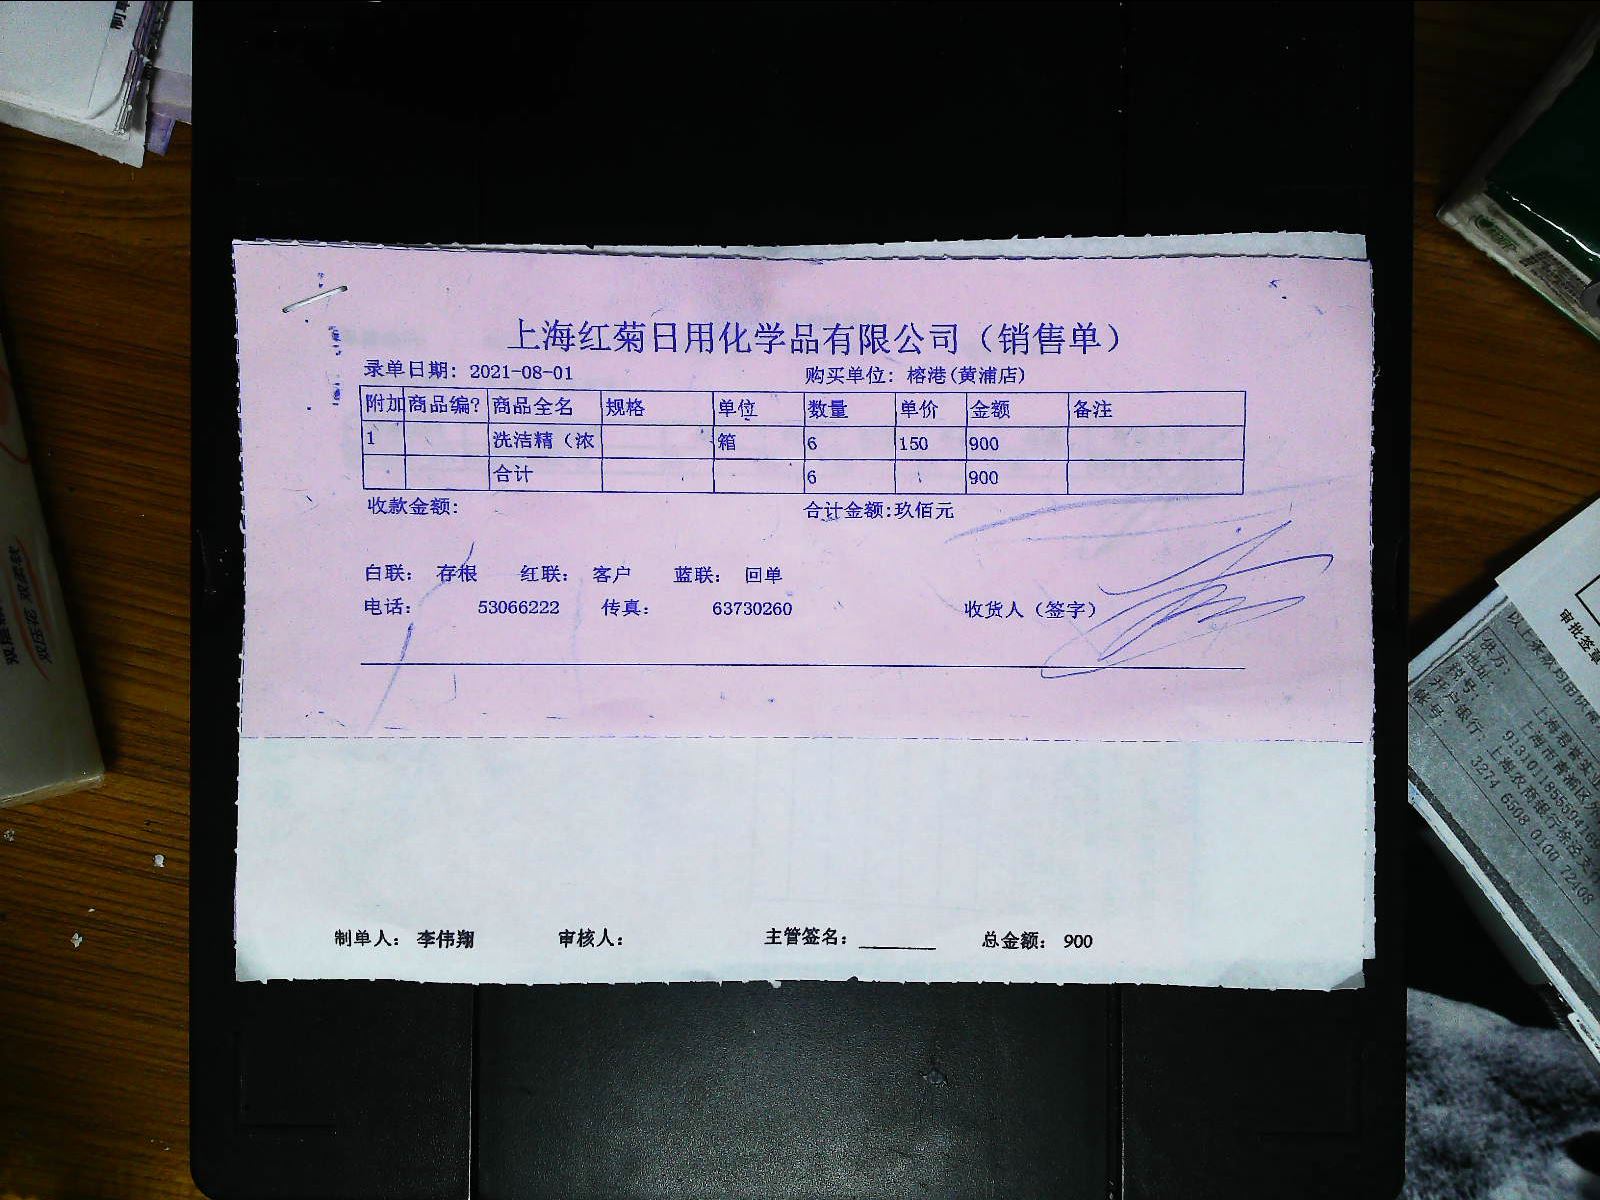 上海红菊日用化学品有限公司（销售单）
录单日期: 2021-08-01 购买单位: 榕港(黄浦店)
附加 商品编? 商品全名 规格 单位 数量 单价 金额 备注
1 洗洁精（浓 箱 6 150 900
合计 6 900
收款金额: 合计金额:玖佰元
白联: 存根 红联: 客户 蓝联: 回单
电话: 53066222 传真: 63730260 收货人（签字）
制单人: 李伟翔 审核人: 主管签名: ______ 总金额: 900
审批签章
税号:
开户银行
账号:
3274 6508 0100 72408